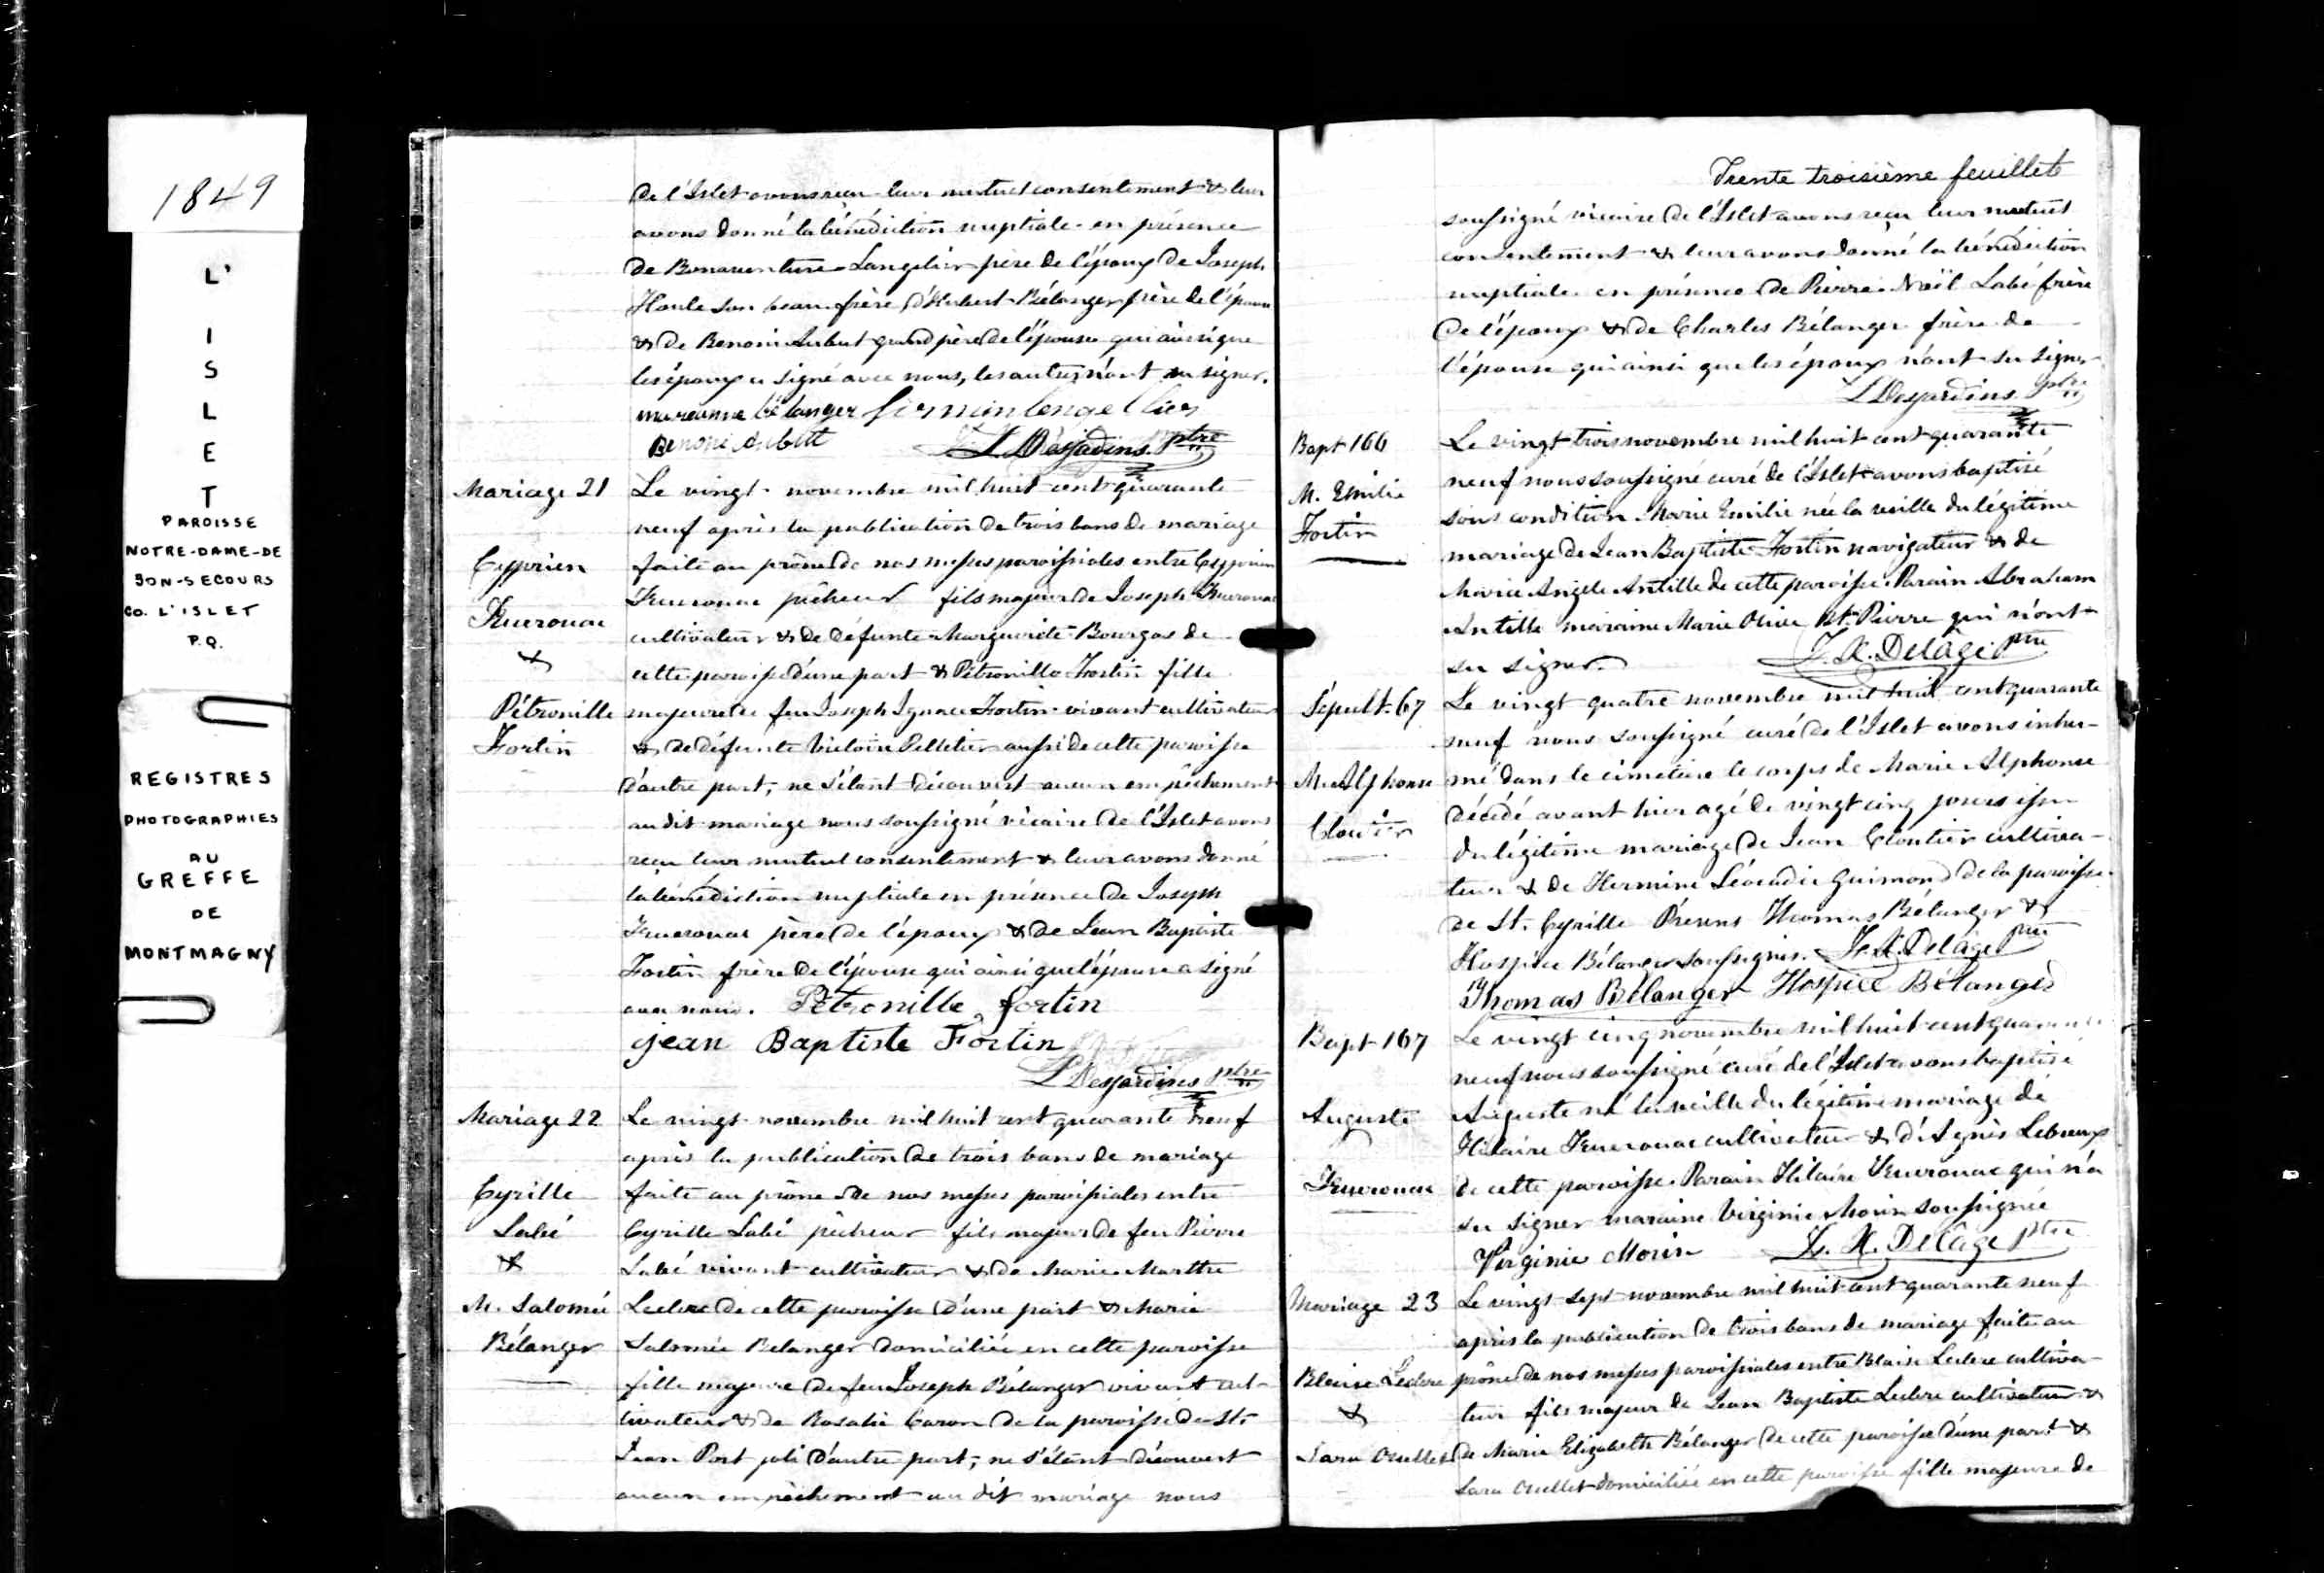 1849
L'
I
S
L
E
T
PAROISSE
NOTRE-DAME-DE
BON-SECOURS
CO. L'ISLET
P.Q.
REGISTRES
PHOTOGRAPHIES
AU
GREFFE
DE
MONTMAGNY
de l'Islet avons reçu leur mutuel consentement & leur
avons donné la bénédiction nuptiale en présence
de Bonaventure Langelier père de l'époux de Joseph
Houle son beau-frère, d'Hubert Bélanger père de l'épouse
& de Benoni Aubut grand père de l'épouse qui ainsi que
les époux a signé avec nous, les autres n'ont su signer.
mareanne bélanger firmin lengellier
Benoni Aubut L. Desjardins Ptre
Mariage 21
Cyprien
Keuerouac
&
Pétronille
Fortin
Le vingt novembre mil huit cent quarante
neuf après la publication de trois bans de mariage
faite au prône de nos messes paroissiales entre Cyprien
Keuerouac pêcheur fils majeur de Joseph Keuerouac
cultivateur & de défunte Marguerite Bourgos de
cette paroisse d'une part & Pétronille Fortin fille
majeure de feu Joseph Ignace Fortin vivant cultivateur
& de défunte Victoire Pelletier aussi de cette paroisse
d'autre part, ne s'étant découvert aucun empêchement
au dit mariage nous soussigné vicaire de l'Islet avons
reçu leur mutuel consentement & leur avons donné
la bénédiction nuptiale en présence de Joseph
Keuerouac père de l'époux & de Jean Baptiste
Fortin frère de l'épouse qui ainsi que l'épouse a signé
avec nous. Pétronille fortin
jean Baptiste Fortin
L Desjardins ptre
Mariage 22
Cyrille
Labé
&
M. Salomée
Bélanger
Le vingt novembre mil huit cent quarante neuf
après la publication de trois bans de mariage
faite au prône de nos messes paroissiales entre
Cyrille Labé pêcheur fils majeur de feu Pierre
Labé vivant cultivateur & de Marie Marthe
Leclerc de cette paroisse d'une part & Marie
Salomée Belanger domiciliée en cette paroisse
fille majeure de feu Joseph Bélanger vivant cul-
tivateur & de Rosalie Caron de la paroisse de St.
Jean Port joli d'autre part, ne s'étant découvert
aucun empêchement au dit mariage nous
Trente troisième feuillet
soussigné vicaire de l'Islet avons reçu leur mutuel
consentement & leur avons donné la bénédiction
nuptiale en présence de Pierre Noël Labé frère
de l'époux & de Charles Bélanger frère de
l'épouse qui ainsi que les époux n'ont su signer
L Desjardins Ptre
Bapt 166
M. Emilie
Fortin
Le vingt trois novembre mil huit cent quarante
neuf nous soussigné curé de l'Islet avons baptisé
sous condition Marie Emilie née la veille du légitime
mariage de Jean Baptiste Fortin navigateur & de
Marie Angèle Antille de cette paroisse. Parain Abraham
Antille maraine Marie Olive St. Pierre qui n'ont
su signer. F. X. Delâge Ptre
Sépult. 67
M. Alphonse
Cloutier
Le vingt quatre novembre mil huit cent quarante
neuf nous soussigné curé de l'Islet avons inhu-
mé dans le cimetière le corps de Marie Alphonse
décédé avant hier agé de vingt cinq jours issu
du légitime mariage de Jean Cloutier cultiva-
teur & de Hermine Léocadie Guimond de la paroisse
de St. Cyrille Présens Thomas Bélanger &
Hospice Bélanger soussignés. F. X. Delâge ptre
Thomas Bélanger Hospice Bélanger
Bapt 167
Auguste
Keuerouac
Le vingt cinq novembre mil huit cent quarante
neuf nous soussigné curé de l'Islet avons baptisé
Auguste né la veille du légitime mariage de
Hilaire Keuerouac cultivateur & d'Agnès Lebreux
de cette paroisse. Parain Hilaire Keuerouac qui n'a
su signer maraine Virginie Morin soussignée
Virginie Morin F. X. Delâge ptre
Mariage 23
Blaise Leclerc
&
Sara Ouellet
Le vingt sept novembre mil huit cent quarante neuf
après la publication de trois bans de mariage faite au
prône de nos messes paroissiales entre Blaise Leclerc cultiva-
teur fils majeur de Jean Baptiste Leclerc cultivateur &
de Marie Elizabeth Bélanger de cette paroisse d'une part &
Sara Ouellet domiciliée en cette paroisse fille majeure de